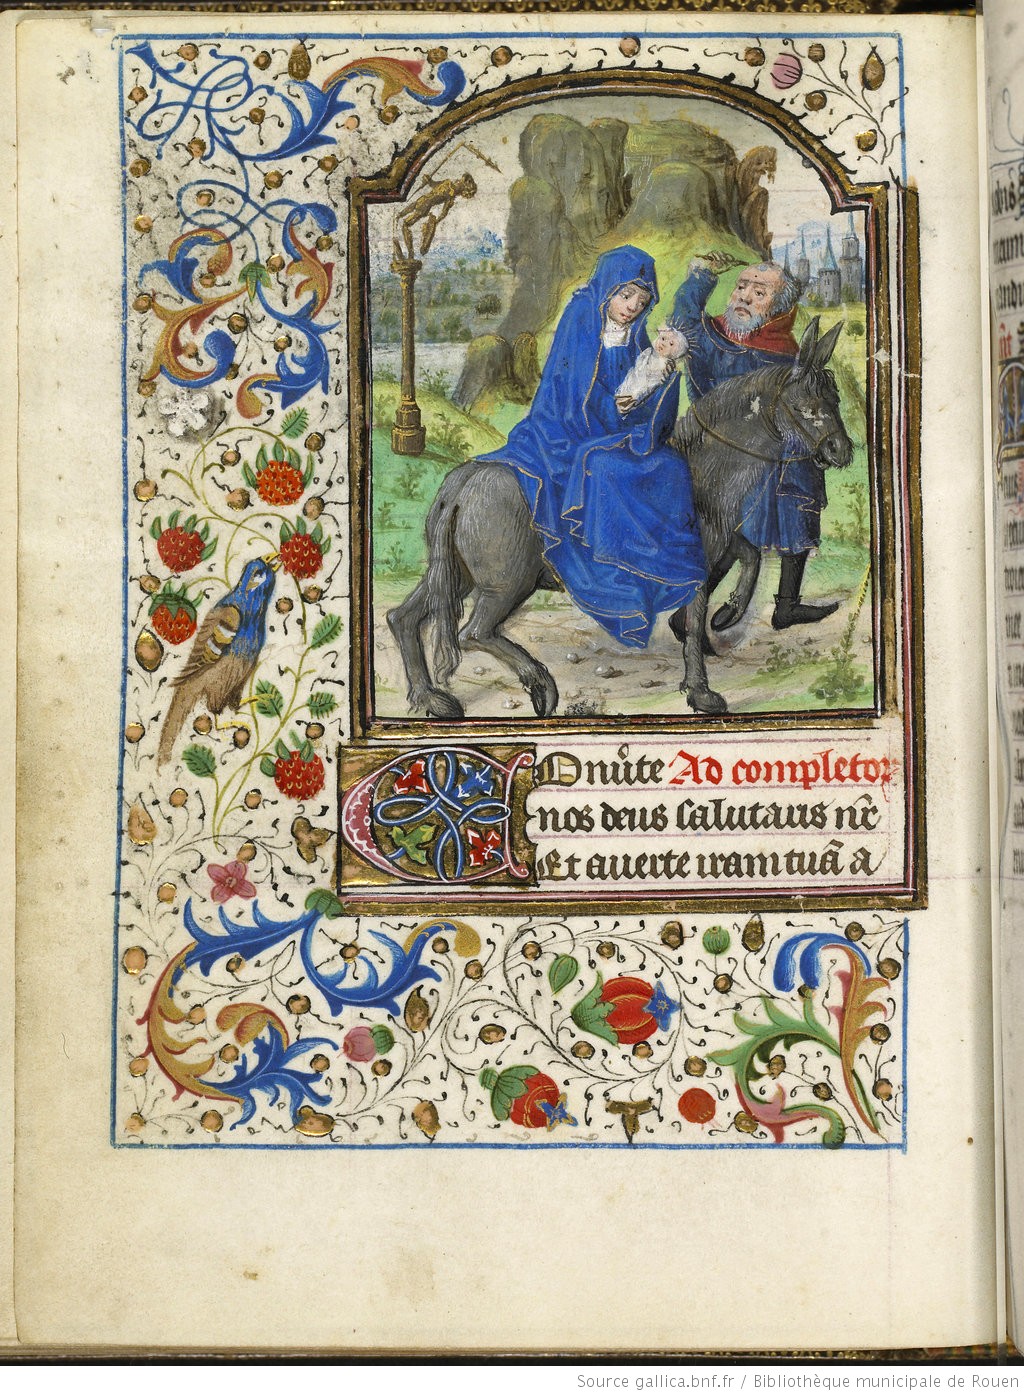 Conūte Ad completor
nos deus salutaris nr̄
Et averte iram tuā a
Source gallica.bnf.fr / Bibliothèque municipale de Rouen